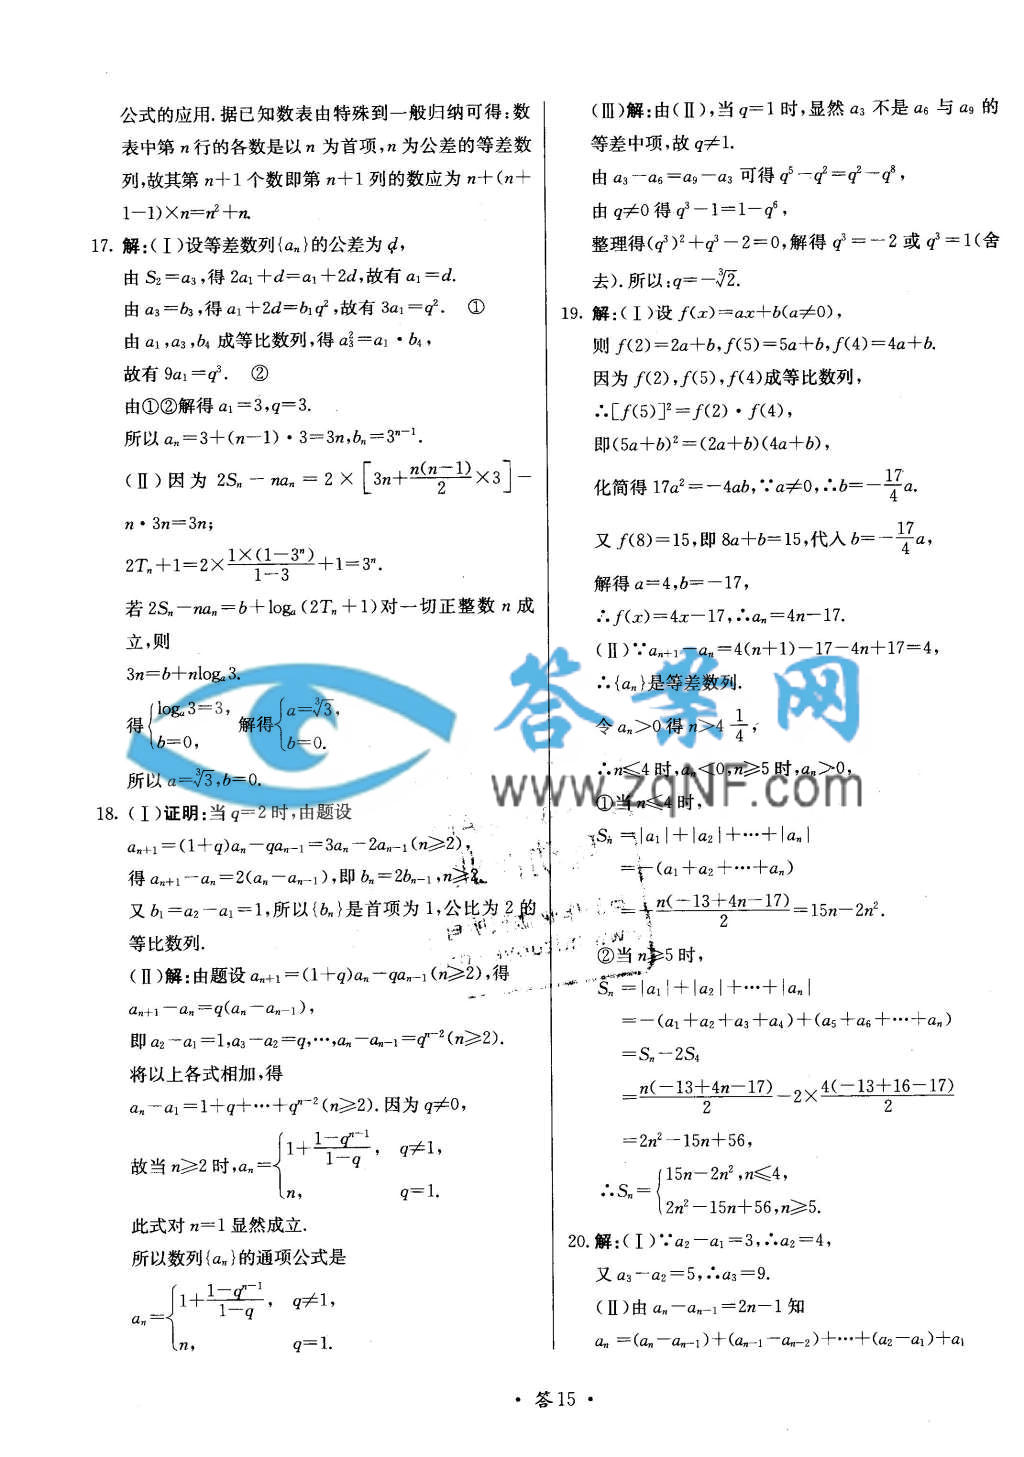 公式的应用.据已知数表由特殊到一般归纳可得:数
表中第 n 行的各数是以 n 为首项,n 为公差的等差数
列,故其第 n+1 个数即第 n+1 列的数应为 n+(n+
1-1)×n=n²+n.
17. 解:(Ⅰ)设等差数列{aₙ}的公差为 d,
由 S₂=a₃,得 2a₁+d=a₁+2d,故有 a₁=d.
由 a₃=b₃,得 a₁+2d=b₁q²,故有 3a₁=q². ①
由 a₁,a₃,b₄ 成等比数列,得 a₃²=a₁·b₄,
故有 9a₁=q³. ②
由①②解得 a₁=3,q=3.
所以 aₙ=3+(n-1)·3=3n,bₙ=3ⁿ⁻¹.
(Ⅱ)因为 2Sₙ-naₙ=2×[3n+n(n-1)/2×3]-
n·3n=3n;
2Tₙ+1=2×1×(1-3ⁿ)/1-3+1=3ⁿ.
若 2Sₙ-naₙ=b+logₐ(2Tₙ+1)对一切正整数 n 成
立,则
3n=b+nlogₐ3.
得{logₐ3=3, b=0, 解得{a=∛3, b=0.
所以 a=∛3,b=0.
18. (Ⅰ)证明:当 q=2 时,由题设
aₙ₊₁=(1+q)aₙ-qaₙ₋₁=3aₙ-2aₙ₋₁(n≥2),
得 aₙ₊₁-aₙ=2(aₙ-aₙ₋₁),即 bₙ=2bₙ₋₁,n≥2.
又 b₁=a₂-a₁=1,所以{bₙ}是首项为 1,公比为 2 的
等比数列.
(Ⅱ)解:由题设 aₙ₊₁=(1+q)aₙ-qaₙ₋₁(n≥2),得
aₙ₊₁-aₙ=q(aₙ-aₙ₋₁),
即 a₂-a₁=1,a₃-a₂=q,…,aₙ-aₙ₋₁=qⁿ⁻²(n≥2).
将以上各式相加,得
aₙ-a₁=1+q+…+qⁿ⁻²(n≥2).因为 q≠0,
故当 n≥2 时,aₙ={1+1-qⁿ⁻¹/1-q, q≠1, n, q=1.
此式对 n=1 显然成立.
所以数列{aₙ}的通项公式是
aₙ={1+1-qⁿ⁻¹/1-q, q≠1, n, q=1.
(Ⅲ)解:由(Ⅱ),当 q=1 时,显然 a₃ 不是 a₆ 与 a₉ 的
等差中项,故 q≠1.
由 a₃-a₆=a₉-a₃ 可得 q⁵-q²=q²-q⁸,
由 q≠0 得 q³-1=1-q⁶,
整理得(q³)²+q³-2=0,解得 q³=-2 或 q³=1(舍
去).所以:q=-∛2.
19. 解:(Ⅰ)设 f(x)=ax+b(a≠0),
则 f(2)=2a+b,f(5)=5a+b,f(4)=4a+b.
因为 f(2),f(5),f(4)成等比数列,
∴[f(5)]²=f(2)·f(4),
即(5a+b)²=(2a+b)(4a+b),
化简得 17a²=-4ab,∵a≠0,∴b=-17/4a.
又 f(8)=15,即 8a+b=15,代入 b=-17/4a,
解得 a=4,b=-17,
∴f(x)=4x-17,∴aₙ=4n-17.
(Ⅱ)∵aₙ₊₁-aₙ=4(n+1)-17-4n+17=4,
∴{aₙ}是等差数列.
令 aₙ>0 得 n>4 1/4,
∴n≤4 时,aₙ<0,n≥5 时,aₙ>0,
①当 n≤4 时,
Sₙ=|a₁|+|a₂|+…+|aₙ|
=-(a₁+a₂+…+aₙ)
=-n(-13+4n-17)/2=15n-2n².
②当 n≥5 时,
Sₙ=|a₁|+|a₂|+…+|aₙ|
=-(a₁+a₂+a₃+a₄)+(a₅+a₆+…+aₙ)
=Sₙ-2S₄
=n(-13+4n-17)/2-2×4(-13+16-17)/2
=2n²-15n+56,
∴Sₙ={15n-2n²,n≤4, 2n²-15n+56,n≥5.
20. 解:(Ⅰ)∵a₂-a₁=3,∴a₂=4,
又 a₃-a₂=5,∴a₃=9.
(Ⅱ)由 aₙ-aₙ₋₁=2n-1 知
aₙ=(aₙ-aₙ₋₁)+(aₙ₋₁-aₙ₋₂)+…+(a₂-a₁)+a₁
答案网
www.zqNF.com
·答15·